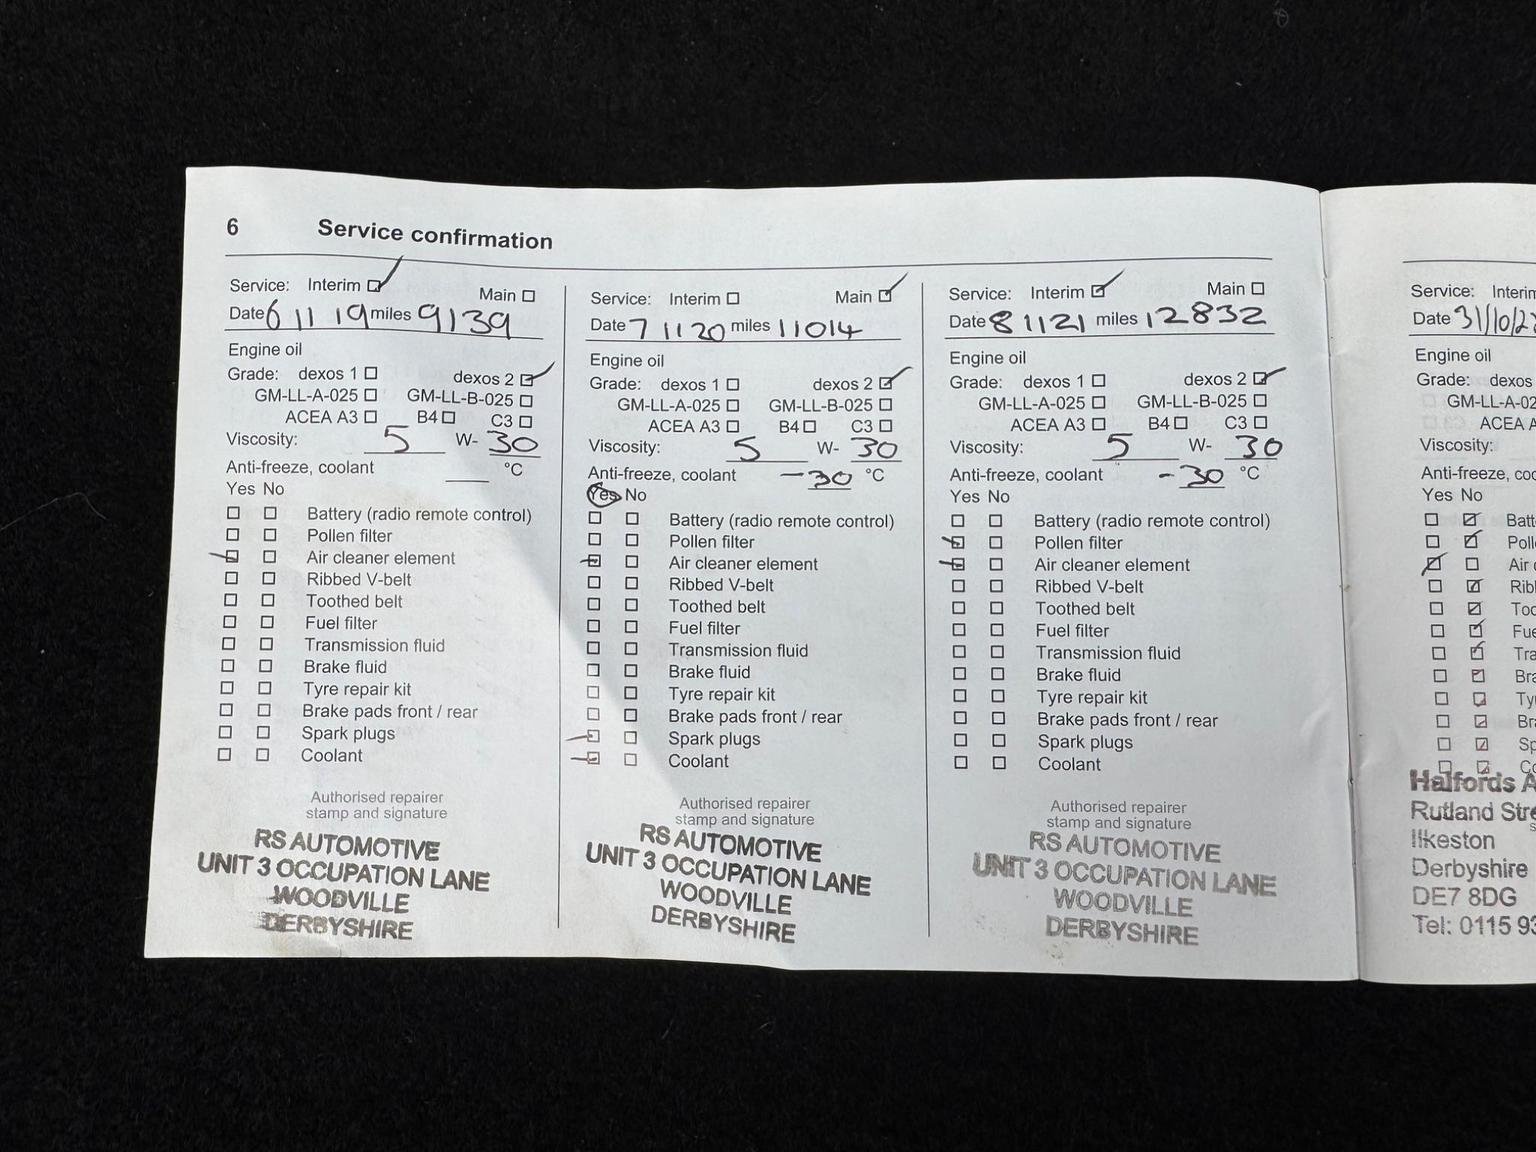 6 Service confirmation
Service: Interim Main
Date 6 11 19 miles 9139
Engine oil
Grade: dexos 1 dexos 2
GM-LL-A-025 GM-LL-B-025
ACEA A3 B4 C3
Viscosity: 5 W- 30
Anti-freeze, coolant °C
Yes No
Battery (radio remote control)
Pollen filter
Air cleaner element
Ribbed V-belt
Toothed belt
Fuel filter
Transmission fluid
Brake fluid
Tyre repair kit
Brake pads front / rear
Spark plugs
Coolant
Authorised repairer
stamp and signature
RS AUTOMOTIVE
UNIT 3 OCCUPATION LANE
WOODVILLE
DERBYSHIRE
Service: Interim Main
Date 7 11 20 miles 11014
Engine oil
Grade: dexos 1 dexos 2
GM-LL-A-025 GM-LL-B-025
ACEA A3 B4 C3
Viscosity: 5 W- 30
Anti-freeze, coolant -30 °C
Yes No
Battery (radio remote control)
Pollen filter
Air cleaner element
Ribbed V-belt
Toothed belt
Fuel filter
Transmission fluid
Brake fluid
Tyre repair kit
Brake pads front / rear
Spark plugs
Coolant
Authorised repairer
stamp and signature
RS AUTOMOTIVE
UNIT 3 OCCUPATION LANE
WOODVILLE
DERBYSHIRE
Service: Interim Main
Date 8 11 21 miles 12832
Engine oil
Grade: dexos 1 dexos 2
GM-LL-A-025 GM-LL-B-025
ACEA A3 B4 C3
Viscosity: 5 W- 30
Anti-freeze, coolant -30 °C
Yes No
Battery (radio remote control)
Pollen filter
Air cleaner element
Ribbed V-belt
Toothed belt
Fuel filter
Transmission fluid
Brake fluid
Tyre repair kit
Brake pads front / rear
Spark plugs
Coolant
Authorised repairer
stamp and signature
RS AUTOMOTIVE
UNIT 3 OCCUPATION LANE
WOODVILLE
DERBYSHIRE
Service:
Date
Engine oil
Grade: dexos
ACEA
Viscosity:
Anti-freeze,
Yes No
Air
Halfords
Rutland
Ilkeston
Derbyshire
DE7 8DG
Tel: 0115